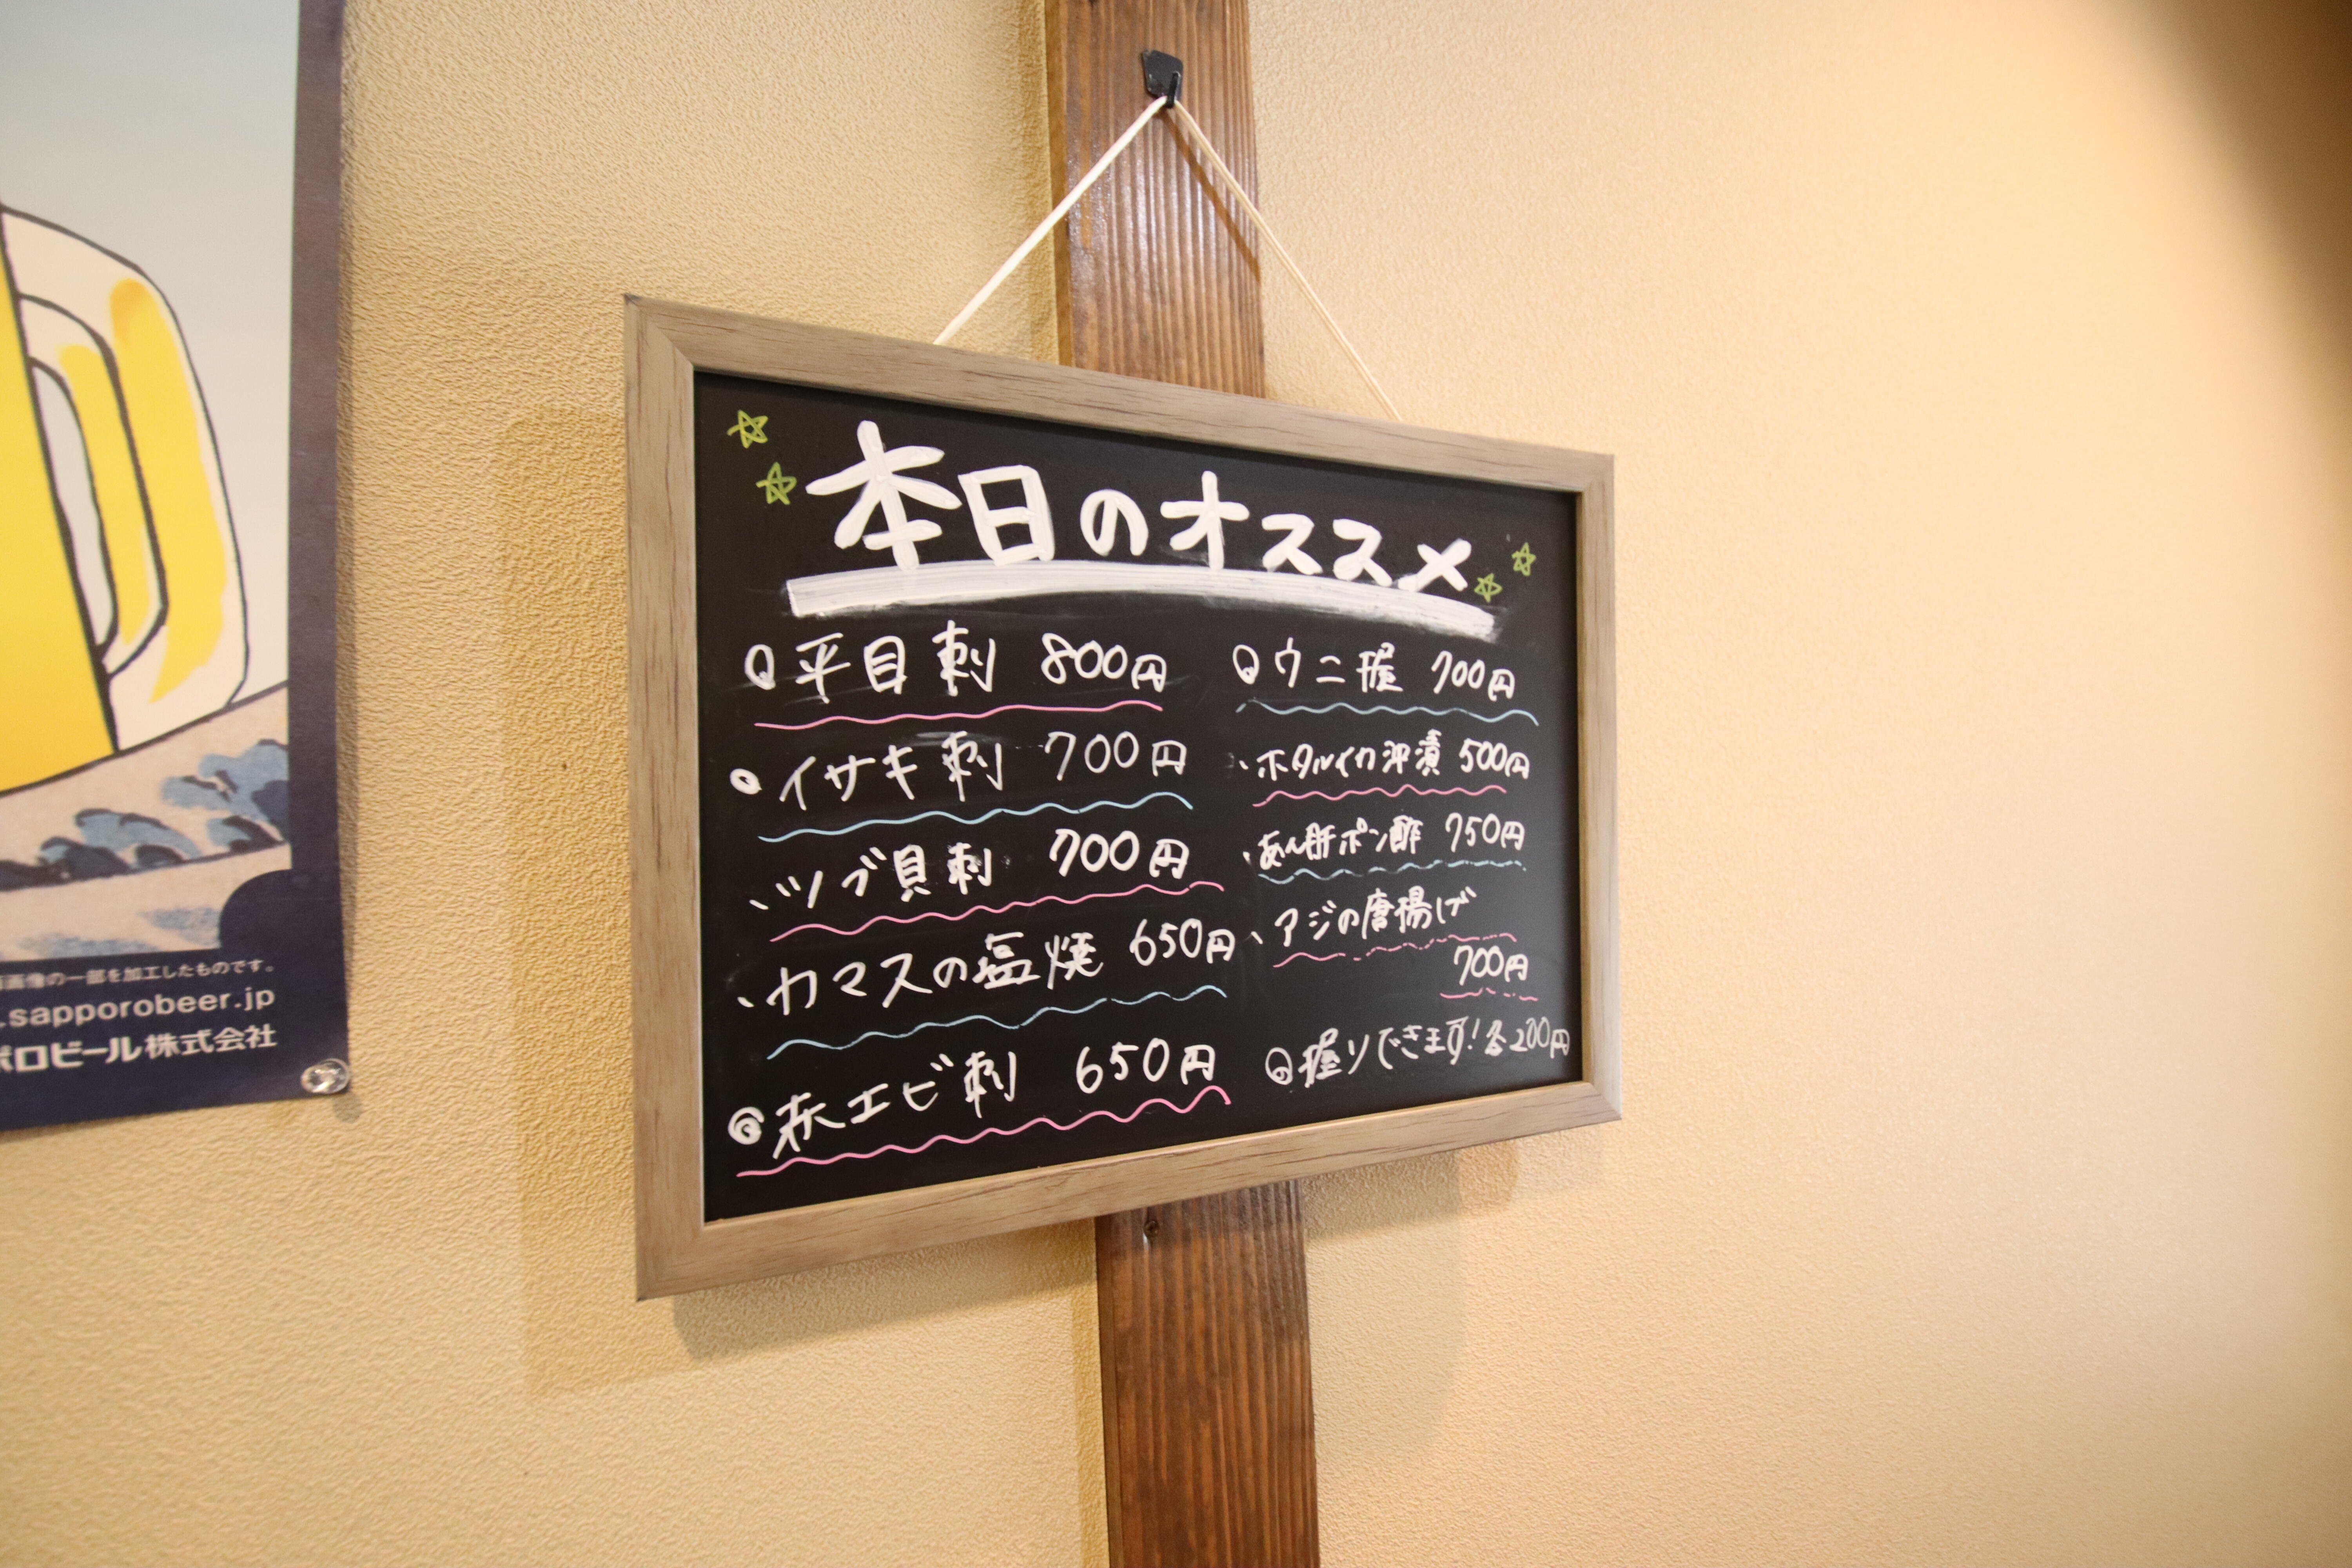 本日のオススメ
平目刺 800円
・イサキ刺 700円
、ツブ貝刺 700円
、カマスの塩焼 650円
◎赤エビ刺 650円
ウニ握 700円
、ホタルイカ沖漬 500円
、あん肝ポン酢 750円
、アジの唐揚げ
700円
◎握りできます!各200円
画像の一部を加工したものです。
.sapporobeer.jp
ポロビール株式会社